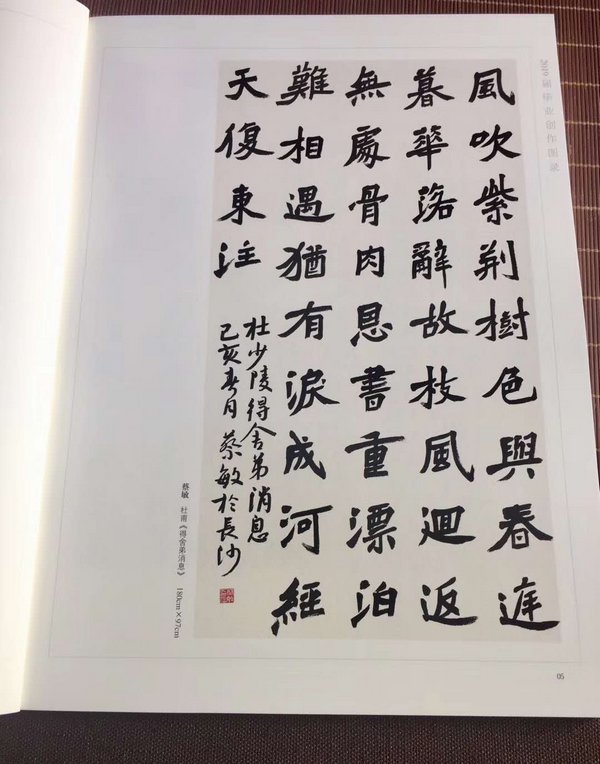 2019届毕业创作图录
風吹紫荆樹色與春庭
暮華落辭故枝風迴返
無處骨肉恩書重漂泊
難相遇猶有淚成河經
天復東注
杜少陵得舍弟消息
己亥春月蔡敏於長沙
蔡敏 杜甫《得舍弟消息》 180cm×97cm
05